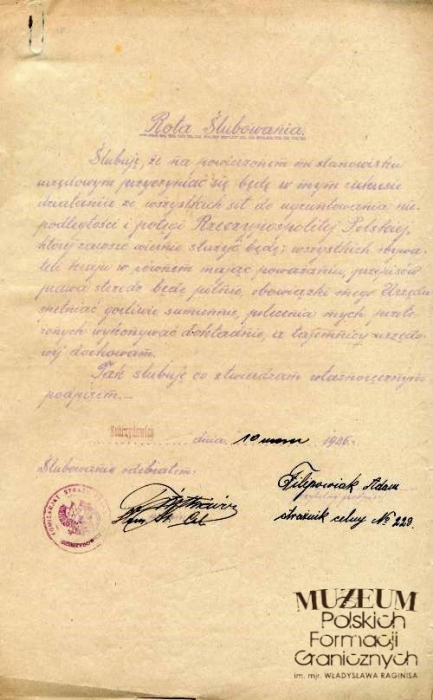 Rota Ślubowania.
Ślubuję, że na powierzonem mi stanowisku
urzędowym przyczyniać się będę w mym zakresie
działania ze wszystkich sił do ugruntowania nie-
podległości i potęgi Rzeczypospolitej Polskiej,
której zawsze wiernie służyć będę; wszystkich obywa-
teli kraju w równem mając poważaniu, przepisów
prawa strzedz będę pilnie, obowiązki mego Urzędu
spełniać gorliwie sumiennie, polecenia mych przeło-
żonych wykonywać dokładnie, a tajemnicy urzędo-
wej dochowam.
Tak ślubuję co stwierdzam własnoręcznym
podpisem.—
dnia 10 1926 r.
Ślubowanie odebrałem:
Filipowiak Adam
strażnik celny № 229.
MUZEUM
Polskich
Formacji
Granicznych
im. mjr. WŁADYSŁAWA RAGINISA